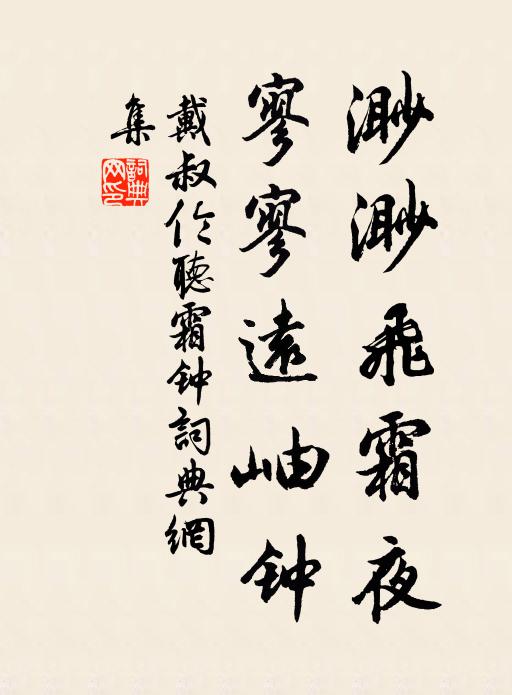 渺渺飛霜夜
寥寥遠岫钟
戴叔伦聽霜钟詞典網
集
詞典
网印